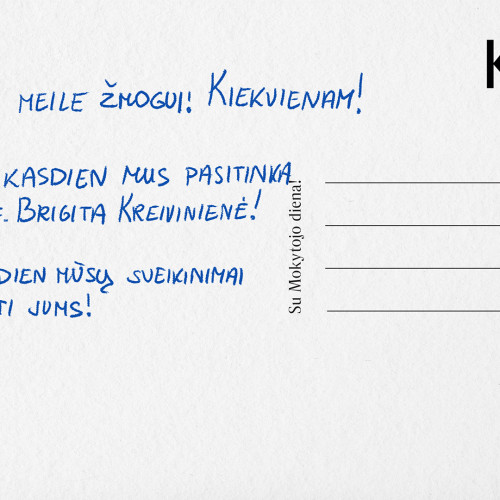 MEILE ŽMOGUI! KIEKVIENAM!
KASDIEN MUS PASITINKA
E. BRIGITA KREIVINIENĖ!
DIEN MŪSŲ SVEIKINIMAI
TI JUMS!
Su Mokytojo diena!
K